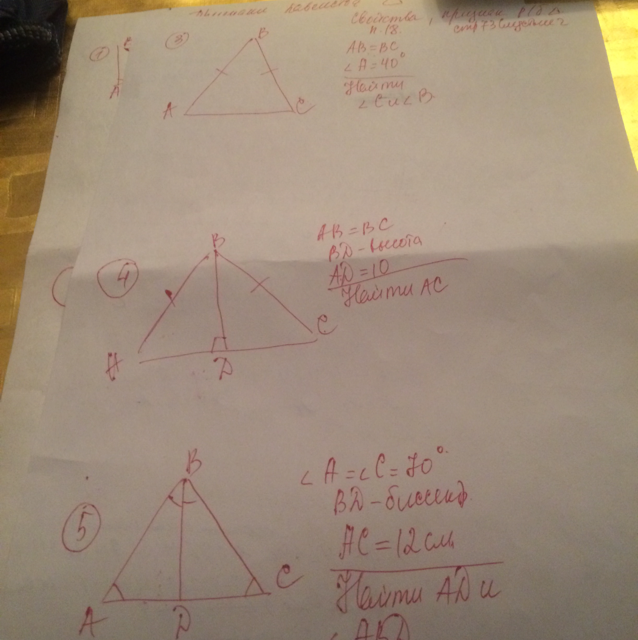 Свойства, признак р/б Δ
п. 18.
③
B
A
C
AB = BC
∠A = 40°
Найти
∠C и ∠B
④
B
A
C
D
AB = BC
BD - высота
AD = 10
Найти AC
⑤
B
A
C
D
∠A = ∠C = 70°
BD - биссект.
AC = 12 см
Найти AD и
∠ABD